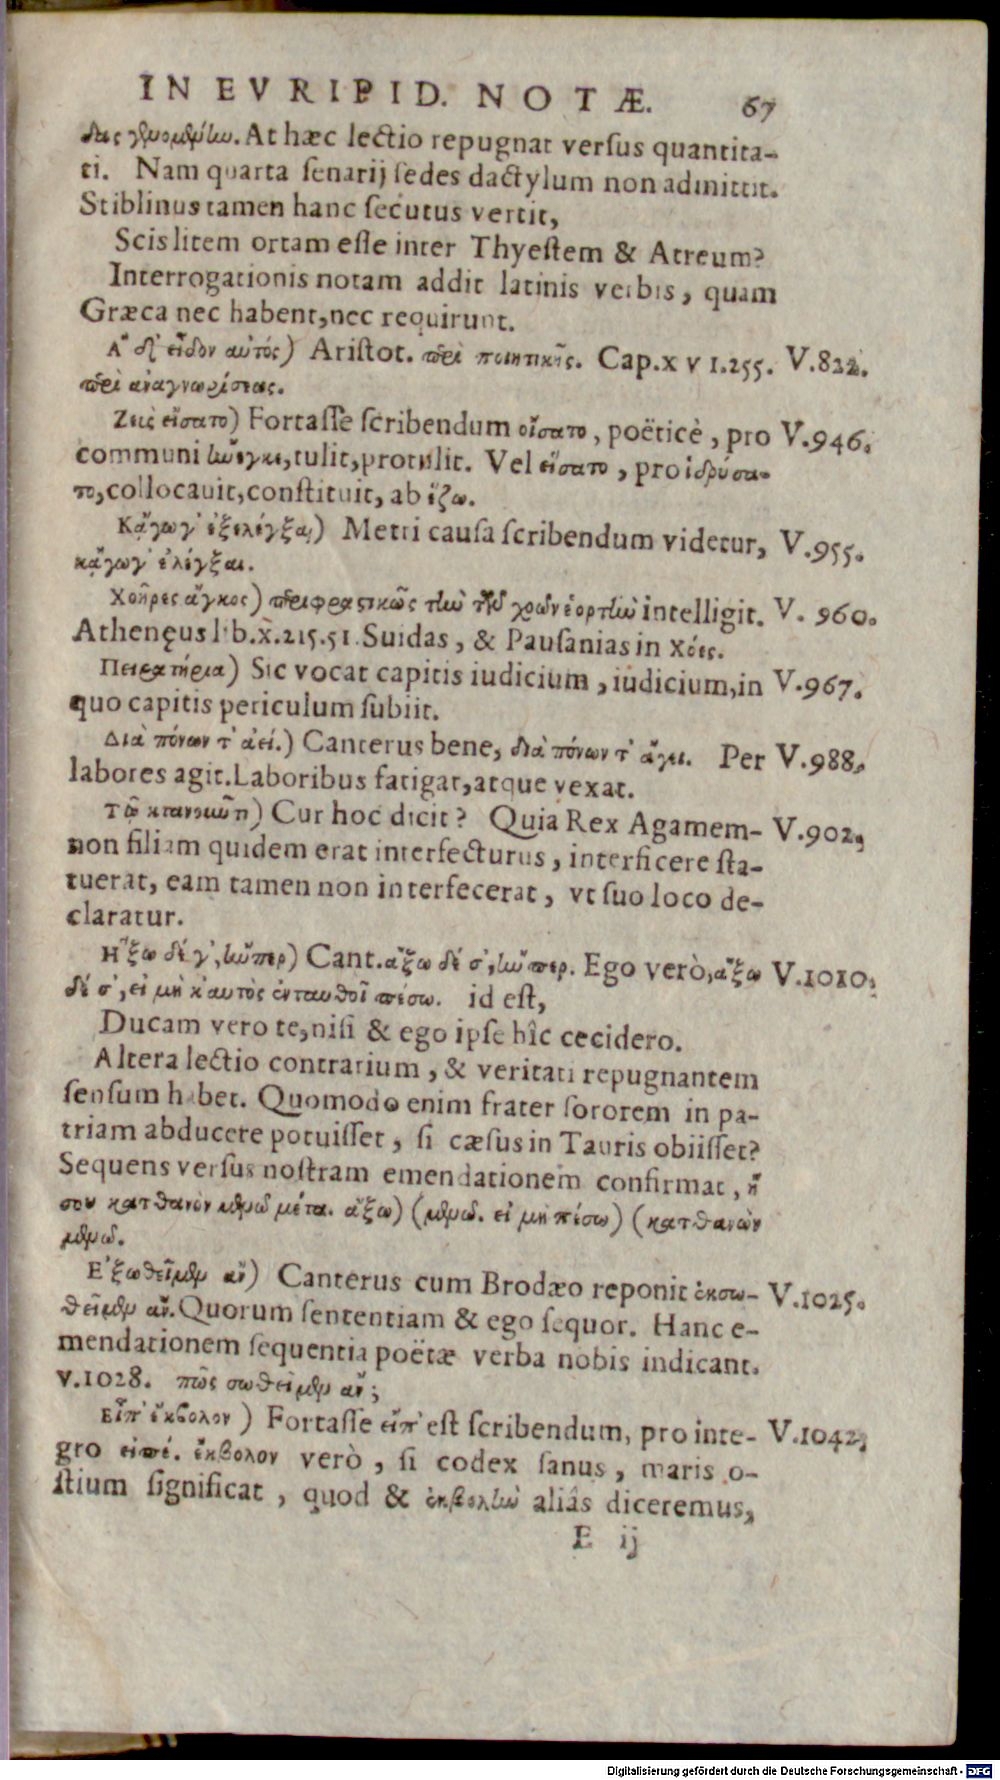 IN EVRIPID. NOTÆ. 67
δας γενομένων. At hæc lectio repugnat versus quantita-
ti. Nam quarta senarij sedes dactylum non admittit.
Stiblinus tamen hanc secutus vertit,
Scis litem ortam esse inter Thyestem & Atreum?
Interrogationis notam addit latinis verbis, quam
Græca nec habent, nec requirunt.
Ἃ δ' εἶδον αὐτός) Aristot. περὶ ποιητικῆς. Cap. xvi. 255. V. 822.
περὶ ἀναγνωρίσεως.
Ζεὺς εἵσατο) Fortasse scribendum οἴσατο, poëticè, pro V. 946.
communi ἤνεγκε, tulit, protulit. Vel εἵσατο, pro ἱδρύσα-
το, collocauit, constituit, ab ἵζω.
Κἄγωγ' ἐξελέγξαι) Metri causa scribendum videtur, V. 955.
κᾄγωγ' ἐλέγξαι.
Χοῆρες ἄγκος) περιφραστικῶς τὴν τῶν χοῶν ἑορτὴν intelligit. V. 960.
Athenęus lib. x. 215. 51. Suidas, & Pausanias in χόες.
Πειρατήρια) Sic vocat capitis iudicium, iudicium, in V. 967.
quo capitis periculum subiit.
Διὰ πόνων τ' ἀεί.) Canterus bene, διὰ πόνων τ' ἄγει. Per V. 988.
labores agit. Laboribus fatigat, atque vexat.
Τῷ κτανοιῶτι) Cur hoc dicit? Quia Rex Agamem- V. 902,
non filiam quidem erat interfecturus, interficere sta-
tuerat, eam tamen non interfecerat, vt suo loco de-
claratur.
Ἥξω δέ γ', ἤνπερ) Cant. ἄξω δέ σ', ἤνπερ. Ego verò, ἄξω V. 1010.
δέ σ', εἰ μὴ καυτὸς ἐνταυθοῖ πέσω. id est,
Ducam vero te, nisi & ego ipse hîc cecidero.
Altera lectio contrarium, & veritati repugnantem
sensum habet. Quomodo enim frater sororem in pa-
triam abducere potuisset, si cæsus in Tauris obiisset?
Sequens versus nostram emendationem confirmat, ἢ
σου κατθανὼν μενῶ μέτα. ἄξω) (μενῶ. εἰ μὴ πέσω) (κατθανὼν
μενῶ.
Ἐξωθεῖμεν ἂν) Canterus cum Brodæo reponit ἐκσω- V. 1025.
θεῖμεν ἄν. Quorum sententiam & ego sequor. Hanc e-
mendationem sequentia poëtæ verba nobis indicant.
v. 1028. πῶς σωθεῖμεν ἄν;
Εἶπ' ἔκβολον) Fortasse εἴπ' est scribendum, pro inte- V. 1042,
gro εἰπέ. ἔκβολον verò, si codex sanus, maris o-
stium significat, quod & ἐκβολὴν aliâs diceremus,
E ij
Digitalisierung gefördert durch die Deutsche Forschungsgemeinschaft - DFG